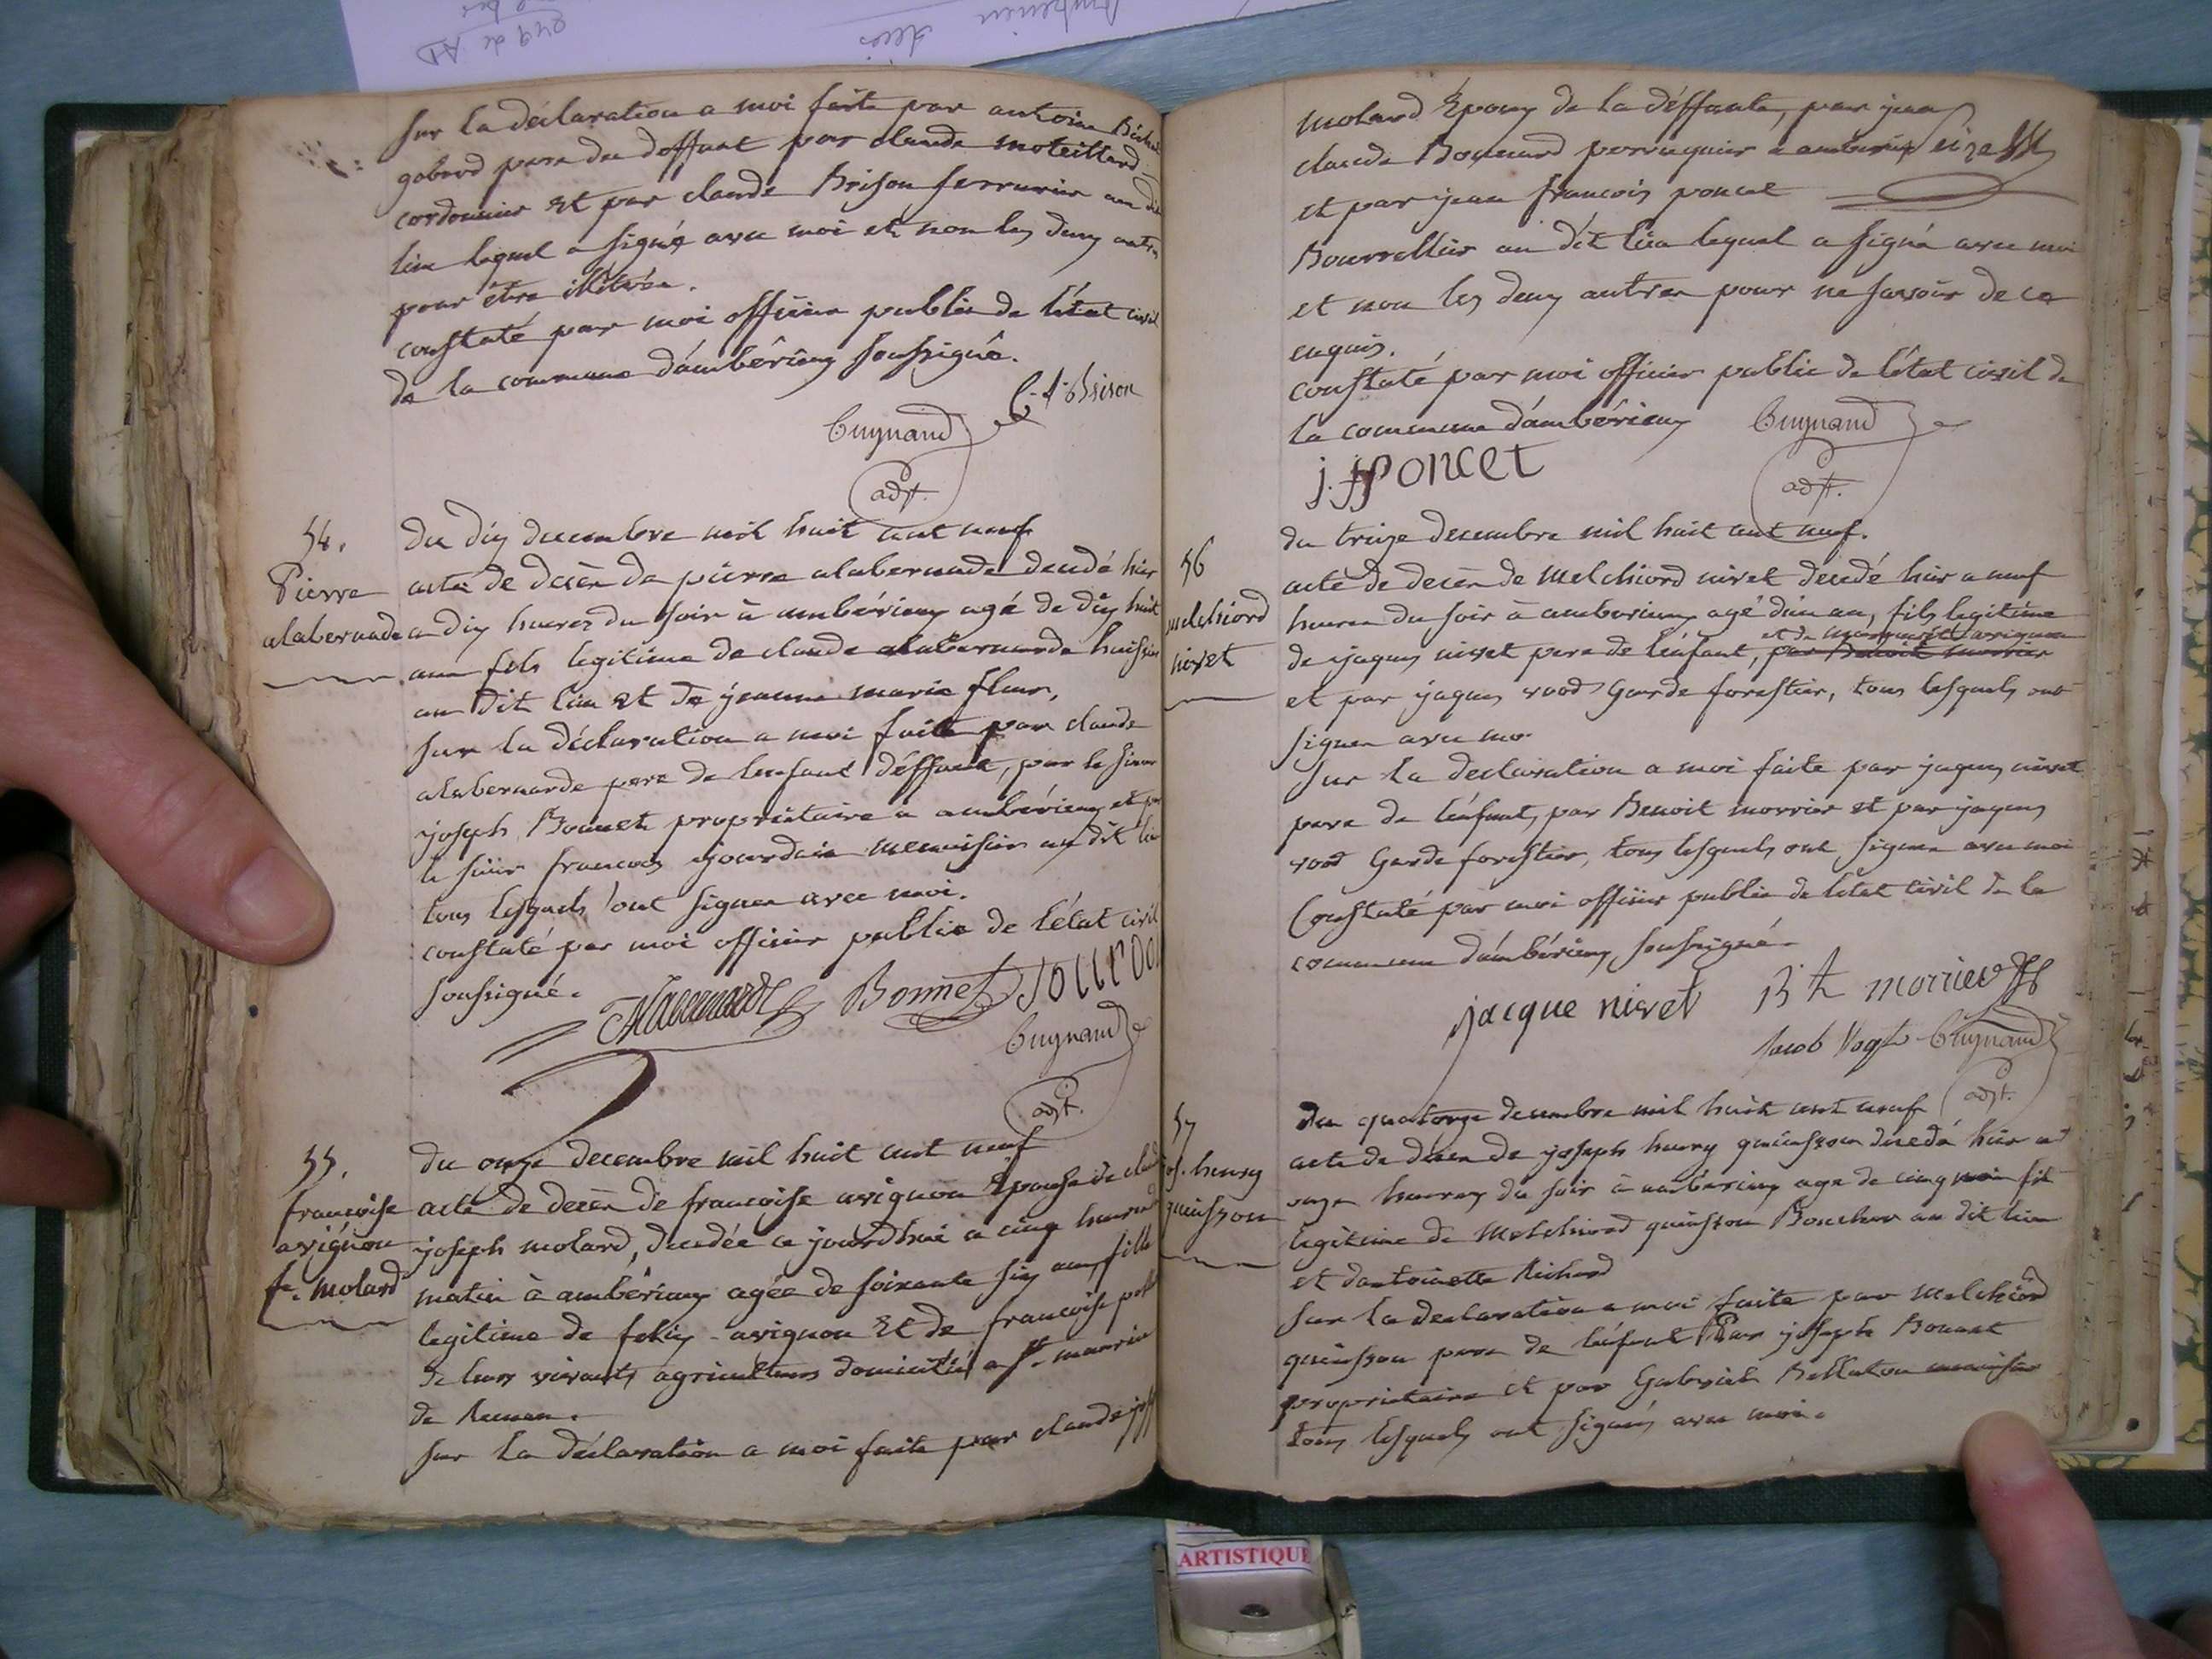 Sur la déclaration a moi faite par antoine
goberd pere du deffunt par claude moteillard
cordonnier et par claude Brison serrurier au dit
lieu lequel a signé avec moi et non les deux autres
pour être illitrés.
constaté par moi officier public de l'état civil
de la commune d'ambérieux soussigné.
C. A. Brison
Cuynand
adjt.
54.
Pierre
alabernade
du dix decembre mil huit cent neuf
acte de decès de pierre alabernade decedé hier
a dix heures du soir à ambérieux agé de dix huit
ans fils legitime de claude alabernarde huissier
au dit lieu et de jeanne marie fleur,
sur la déclaration a moi faite par claude
alabernarde pere de lenfant déffunt, par le sieur
joseph Bonnet propriétaire a ambérieux et par
le sieur francois jourdain menuisier au dit lieu
tous lesquels ont signer avec moi.
constaté par moi officier public de l'état civil
soussigné.
Bonnet
Cuynand
adjt.
55.
francoise
avignon
fe. molard
du onze decembre mil huit cent neuf
acte de decès de francoise avignon Epouse de claude
joseph molard, decedée ce jourdhui a cinq heures
matin à ambérieux agée de soixante six ans, fille
legitime de felix avignon et de francoise
de leurs vivants agriculteurs domicilié a St. maurice
de Remen.
sur la déclaration a moi faite par claude jph
molard Epoux de la déffunte, par jean
claude Bonnard perruquier a ambérieux
et par jean francois poncet
Bourrellier au dit lieu lequel a signé avec moi
et non les deux autres pour ne savoir de ce
enquis.
constaté par moi officier public de l'état civil de
la commune d'ambérieux
Cuynand
adjt.
j. f poncet
56
melchiord
nivet
du treize decembre mil huit cent neuf.
acte de decès de Melchiord nivet decedé hier a neuf
heures du soir à amberieux agé d'un an, fils legitime
et de marguerite avignon
de jaques nivet pere de l'enfant, par Benoit morrier
et par jaques vood Garde forestier, tous lesquels ont
signer avec mo
Sur la declaration a moi faite par jaques nivet
pere de l'enfant, par Benoit morrier et par jaques
vood Garde forestier, tous lesquels ont signer avec moi
Constaté par moi officier public de l'état civil de la
commune d'ambérieux soussigné.
jacque nivet
Bt morrier
Jacob Vogt
Cuynand
adjt.
57
jos. henry
quinsson
du quatorze decembre mil huit cent neuf
acte de decès de joseph henry quinsson decedé hier a
onze heures du soir à ambérieux age de cinq mois fils
legitime de Melchiord quinsson Boucher au dit lieu
et dantoinette Richard
sur la declaration a moi faite par Melchiord
quinsson pere de l'enfant Par joseph Bonnet
propriétaire et par Gabriel Bellaton menuisier
tous lesquels ont signés avec moi.
ARTISTIQUE